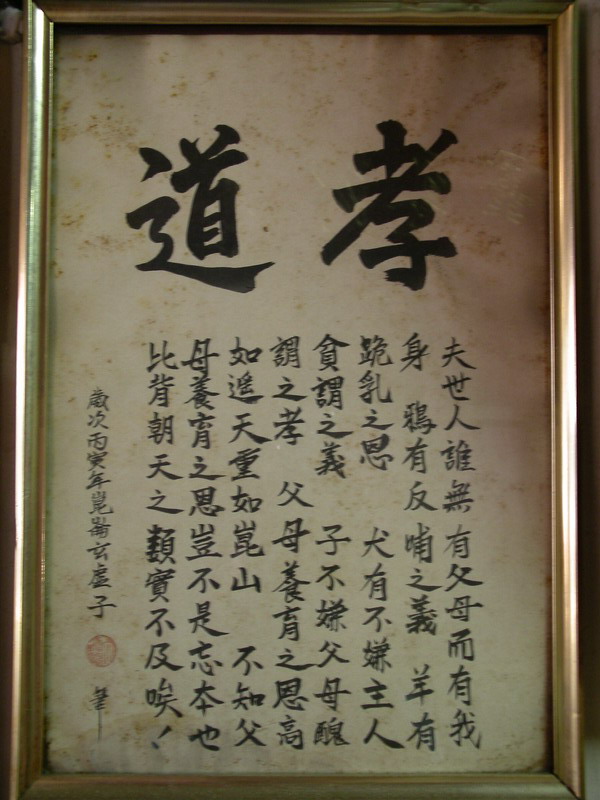 孝道
夫世人誰無有父母而有我
身 鴉有反哺之義 羊有
跪乳之恩 犬有不嫌主人
貧謂之義 子不嫌父母醜
謂之孝 父母養育之恩高
如遥天重如崑山 不知父
母養育之恩豈不是忘本也
比背朝天之類實不及唉！
歲次丙寅年崑崙玄虛子
筆